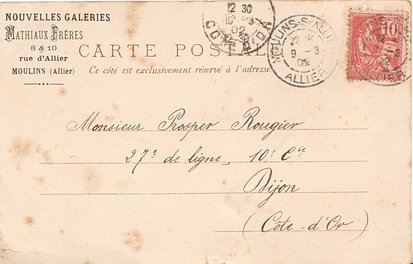 NOUVELLES GALERIES
MATHIAUX FRÈRES
8 & 10
rue d'Allier
MOULINS (Allier)
CARTE POSTALE
Ce côté est exclusivement réservé à l'adresse
12 30
10 -3
02
COTE-D'OR
MOULINS-S-ALLIER
9 -3
02
ALLIER
10
Monsieur Prosper Rougier
27e de ligne, 10e Cie
Dijon
(Côte-d'Or)